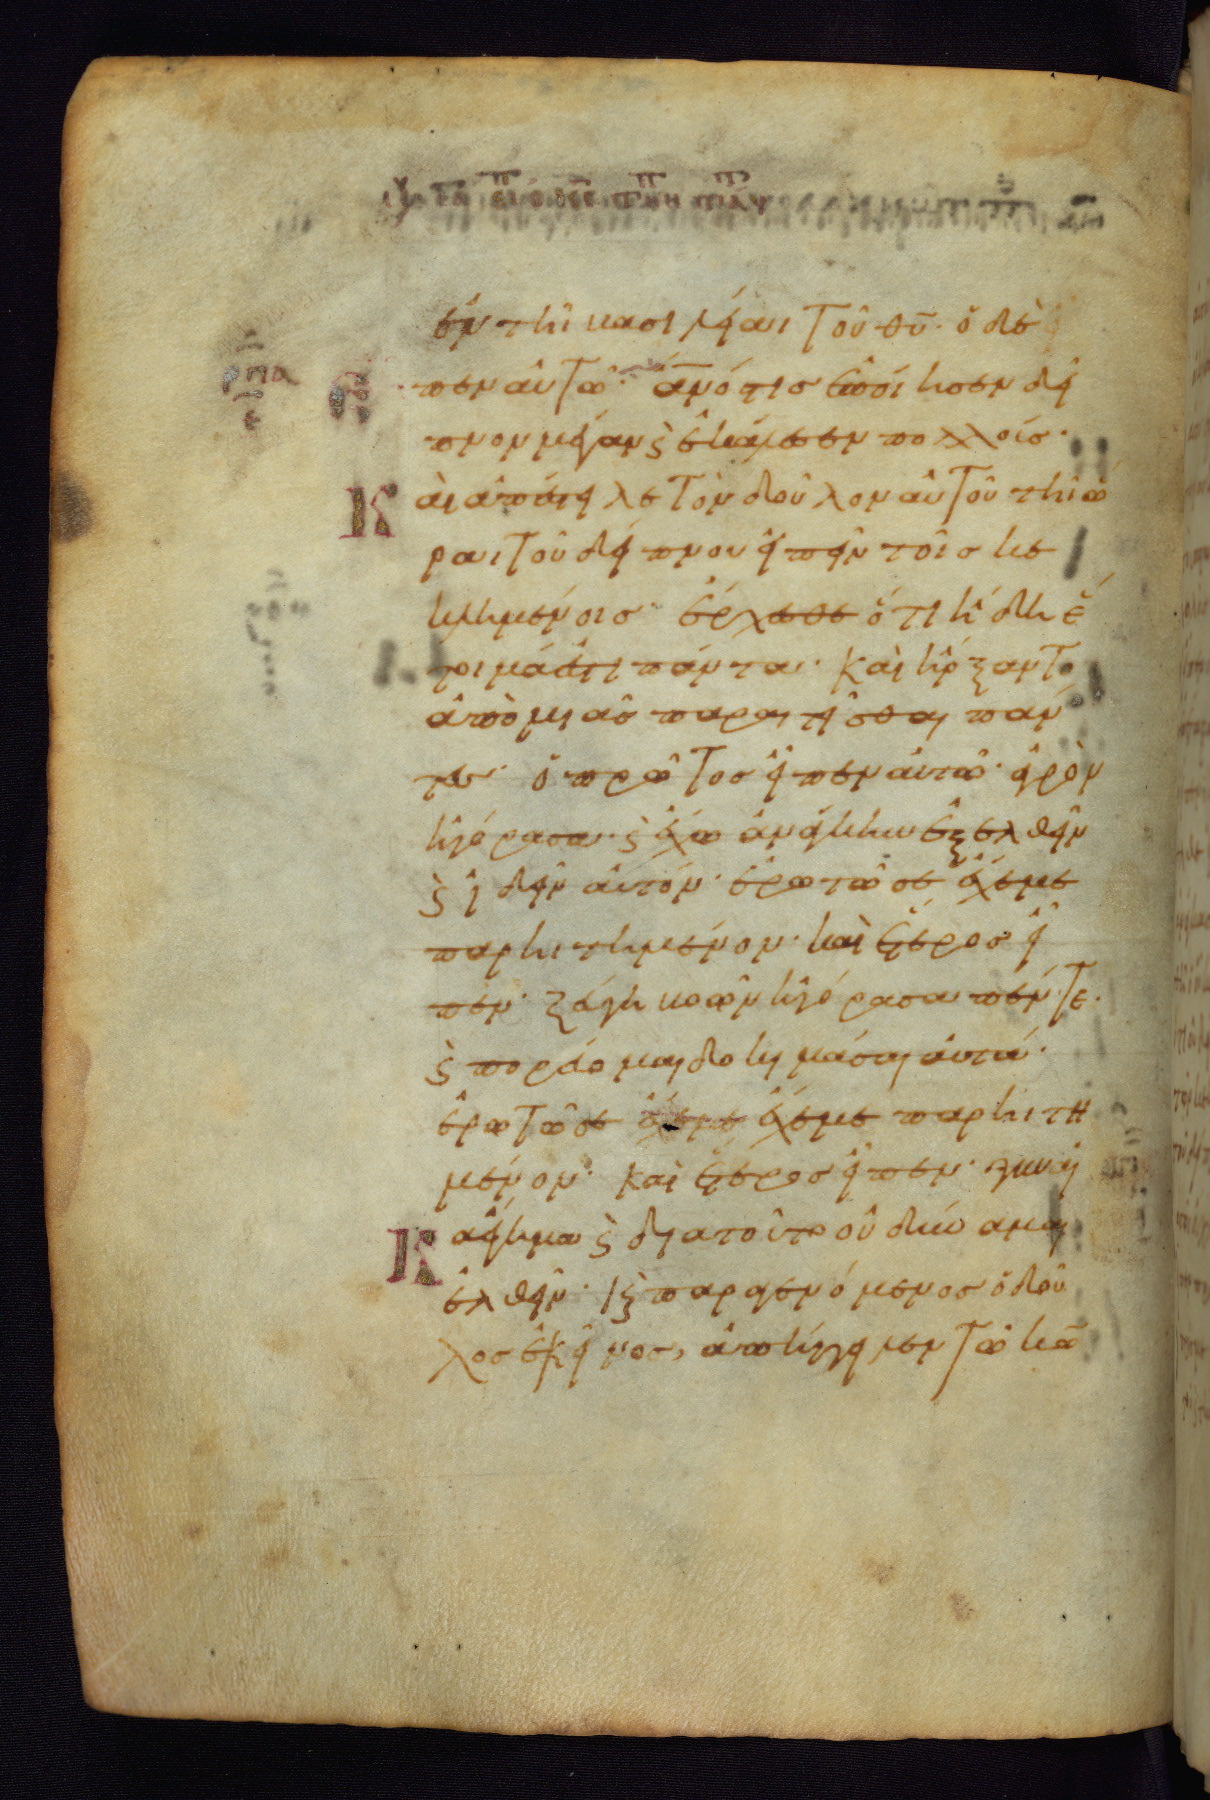 ἐν τῆι βασιλείαι τοῦ θυ̅· ὁ δὲ εἶ
πεν αὐτῶ· ἄνος τις ἐποίησεν δεῖ
πνον μέγαν ϗ ἐκάλεσεν πολλούς·
Καὶ ἀπέστειλε τὸν δοῦλον αὐτοῦ τῆι ὥ
ραι τοῦ δείπνου εἰπεῖν τοῖς κε
κλημένοις· ἔρχεσθε ὅτι ἤδη ἕ
τοιμά ἐστι πάντα· καὶ ἤρξαντο
ἀπὸ μιᾶς παραιτεῖσθαι πάν
τες· ὁ πρῶτος εἶπεν αὐτῶ· ἀγρὸν
ἠγόρασα· ϗ ἔχω ἀνάγκην ἐξελθεῖν
ϗ ἰδεῖν αὐτόν· ἐρωτῶ σε ἔχε με
παρηιτημένον· καὶ ἕτερος εἶ
πεν· ζεύγη βοῶν ἠγόρασα πέντε·
ϗ πορεύομαι δοκιμάσαι αὐτά·
ἐρωτῶ σε ἔχε με ἔχε με παρηιτη
μένον· καὶ ἕτερος εἶπεν· γυναῖ
Κα ἔγημα ϗ διατοῦτο οὐ δύναμαι
ἐλθεῖν· ϗ παραγενόμενος ὁ δοῦ
λος ἐκεῖνος, ἀπήγγειλεν τῶ κω̅